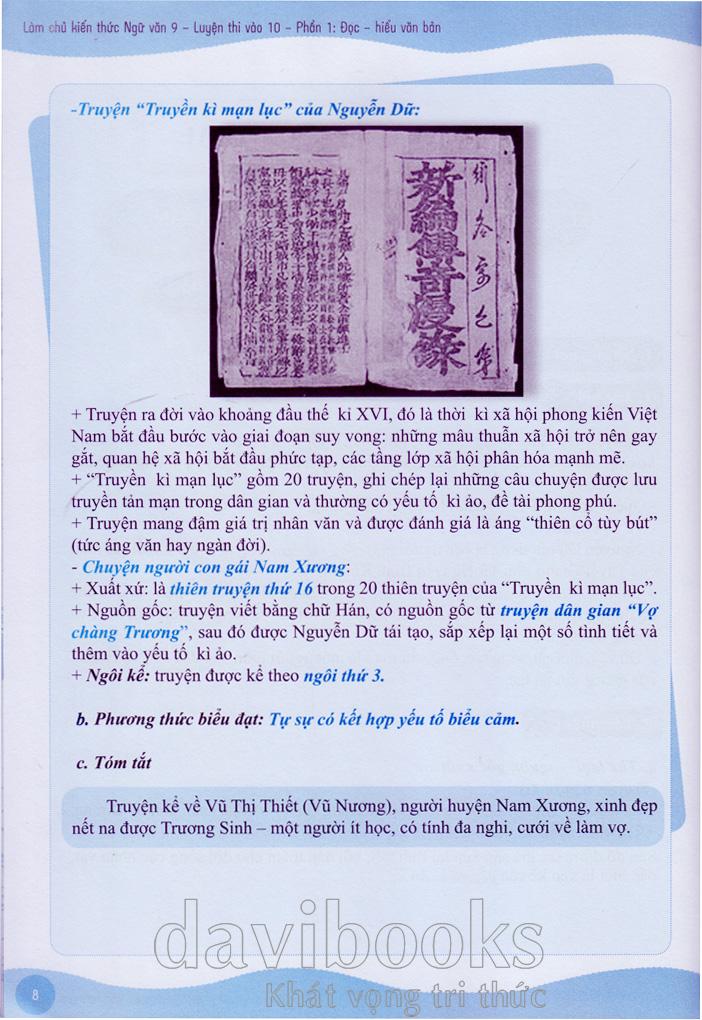 Làm chủ kiến thức Ngữ văn 9 – Luyện thi vào 10 – Phần 1: Đọc – hiểu văn bản
-Truyện “Truyền kì mạn lục” của Nguyễn Dữ:
新編傳奇漫錄
+ Truyện ra đời vào khoảng đầu thế kỉ XVI, đó là thời kì xã hội phong kiến Việt
Nam bắt đầu bước vào giai đoạn suy vong: những mâu thuẫn xã hội trở nên gay
gắt, quan hệ xã hội bắt đầu phức tạp, các tầng lớp xã hội phân hóa mạnh mẽ.
+ “Truyền kì mạn lục” gồm 20 truyện, ghi chép lại những câu chuyện được lưu
truyền tản mạn trong dân gian và thường có yếu tố kì ảo, đề tài phong phú.
+ Truyện mang đậm giá trị nhân văn và được đánh giá là áng “thiên cổ tùy bút”
(tức áng văn hay ngàn đời).
- Chuyện người con gái Nam Xương:
+ Xuất xứ: là thiên truyện thứ 16 trong 20 thiên truyện của “Truyền kì mạn lục”.
+ Nguồn gốc: truyện viết bằng chữ Hán, có nguồn gốc từ truyện dân gian “Vợ
chàng Trương”, sau đó được Nguyễn Dữ tái tạo, sắp xếp lại một số tình tiết và
thêm vào yếu tố kì ảo.
+ Ngôi kể: truyện được kể theo ngôi thứ 3.
b. Phương thức biểu đạt: Tự sự có kết hợp yếu tố biểu cảm.
c. Tóm tắt
Truyện kể về Vũ Thị Thiết (Vũ Nương), người huyện Nam Xương, xinh đẹp
nết na được Trương Sinh – một người ít học, có tính đa nghi, cưới về làm vợ.
davibooks
Khát vọng tri thức
8